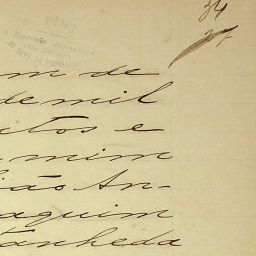 34
27
m de
de mil
tos e
mim
lião An-
aquim
tanheda